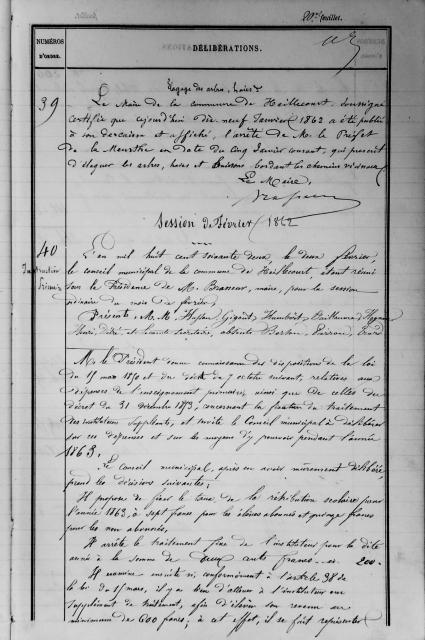 feuillet.
NUMÉROS D'ORDRE.
DÉLIBÉRATIONS.
Elagage des arbres, haies
39
Le Maire de la commune de Heillecourt, soussigné
certifie que cejourd'hui dix neuf Janvier 1862 a été publié
à son de caisse et affiché, l'arrêté de M. le Préfet
de la Meurthe en date du cinq Janvier courant, qui prescrit
d'élaguer les arbres, haies et buissons bordant les chemins vicinaux
Le Maire,
Session de Février 1862
40
Instruction
Primaire
L'an mil huit cent soixante deux, le deux février,
le conseil municipal de la commune de Heillecourt, étant réuni
sous la Présidence de M. Brasseur, maire, pour la session
ordinaire du mois de février,
Présents, M. M.
secrétaire, absents
M. le Président donne connaissance des dispositions de la loi
du 15 mars 1850 et du décret du 7 octobre suivant, relatives aux
dépenses de l'enseignement primaire, ainsi que de celles du
décret du 31 décembre 1853, concernant la fixation du traitement
des instituteurs suppléants, et invite le Conseil municipal à délibérer
sur ces dépenses et sur les moyens d'y pourvoir pendant l'année
1863.
Le Conseil municipal, après en avoir mûrement délibéré,
prend les décisions suivantes;
Il propose de fixer le taux de la rétribution scolaire pour
l'année 1863, à sept francs pour les élèves abonnés et francs
pour les non abonnés,
Il arrête le traitement fixe de l'instituteur pour la dite
année à la somme de deux cents francs ci 200.
Il examine ensuite si, conformément à l'article 38 de
la loi du 15 mars, il y a lieu d'allouer à l'instituteur un
supplément de traitement, afin d'élever son revenu au
minimum de 600 francs; à cet effet, il se fait représenter